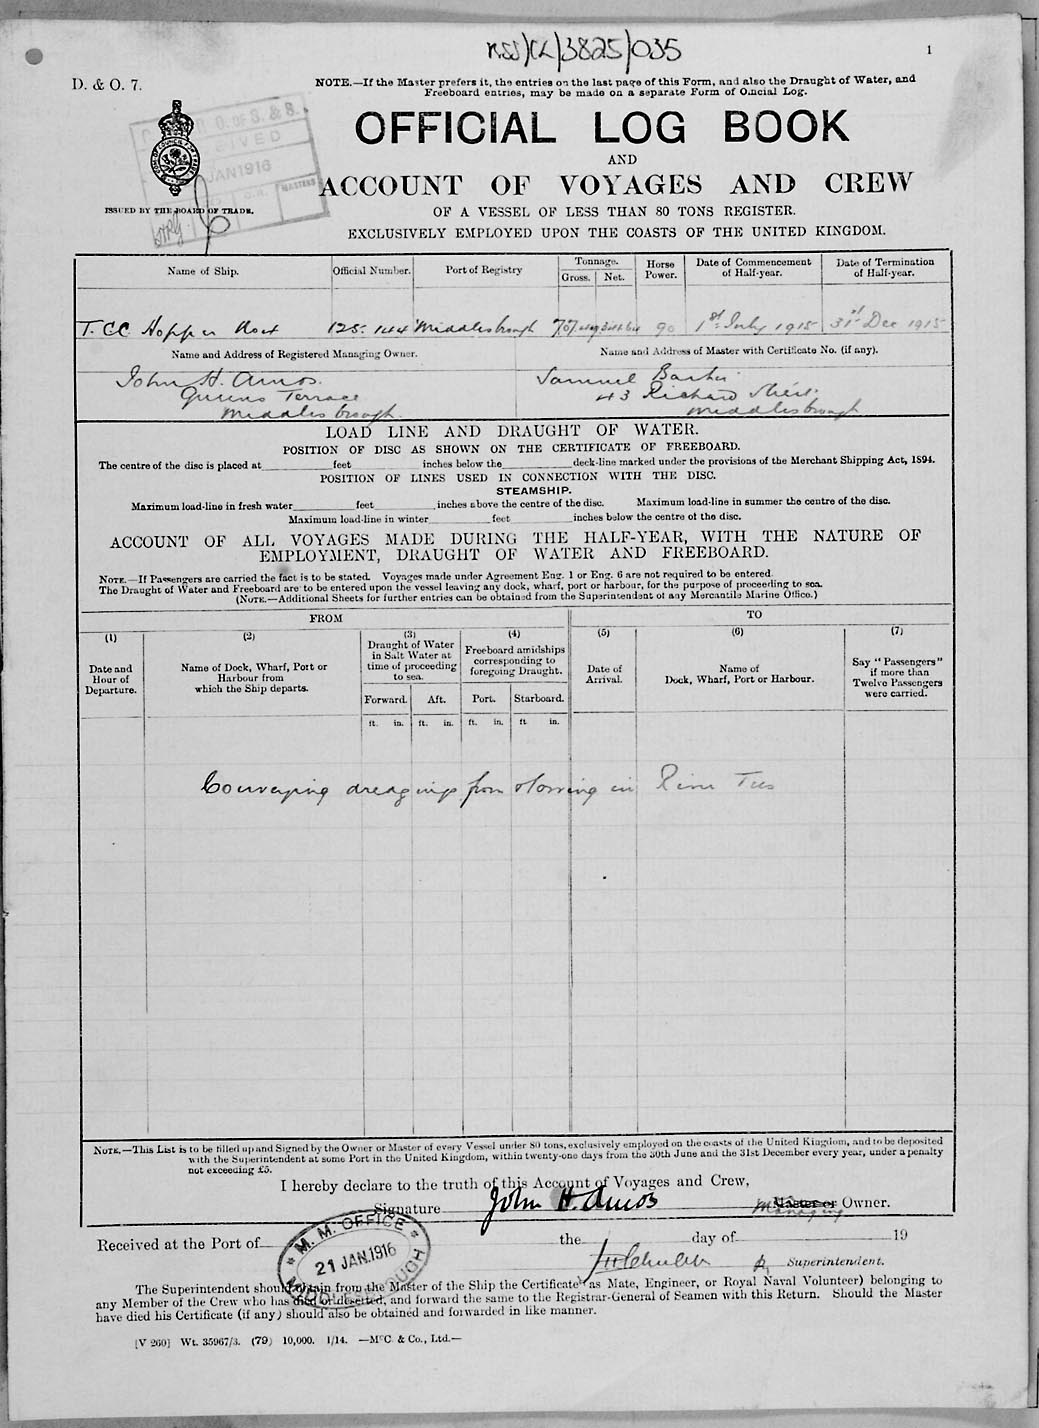 RSS/CL/3825/035
1
D. & O. 7.
NOTE.—If the Master prefers it, the entries on the last page of this Form, and also the Draught of Water, and
Freeboard entries, may be made on a separate Form of Official Log.
OFFICIAL LOG BOOK
AND
ACCOUNT OF VOYAGES AND CREW
OF A VESSEL OF LESS THAN 80 TONS REGISTER.
EXCLUSIVELY EMPLOYED UPON THE COASTS OF THE UNITED KINGDOM.
JAN 1916
MASTERS
ISSUED BY THE BOARD OF TRADE.
Name of Ship. Official Number. Port of Registry Tonnage. Gross. Net. Horse Power. Date of Commencement of Half-year. Date of Termination of Half-year.
T.C.C. Hopper No 125.144 Middlesbrough 90 1st July 1915 31st Dec 1915
Name and Address of Registered Managing Owner. Name and Address of Master with Certificate No. (if any).
John H. Amos. Samuel
Queens Terrace 43 Richard Street
Middlesbrough. Middlesbrough
LOAD LINE AND DRAUGHT OF WATER.
POSITION OF DISC AS SHOWN ON THE CERTIFICATE OF FREEBOARD.
The centre of the disc is placed at feet inches below the deck-line marked under the provisions of the Merchant Shipping Act, 1894.
POSITION OF LINES USED IN CONNECTION WITH THE DISC.
STEAMSHIP.
Maximum load-line in fresh water feet inches above the centre of the disc. Maximum load-line in summer the centre of the disc.
Maximum load-line in winter feet inches below the centre of the disc.
ACCOUNT OF ALL VOYAGES MADE DURING THE HALF-YEAR, WITH THE NATURE OF
EMPLOYMENT, DRAUGHT OF WATER AND FREEBOARD.
NOTE.—If Passengers are carried the fact is to be stated. Voyages made under Agreement Eng. 1 or Eng. 6 are not required to be entered.
The Draught of Water and Freeboard are to be entered upon the vessel leaving any dock, wharf, port or harbour, for the purpose of proceeding to sea.
(NOTE.—Additional Sheets for further entries can be obtained from the Superintendent of any Mercantile Marine Office.)
FROM TO
(1) (2) (3) (4) (5) (6) (7)
Date and Hour of Departure.
Name of Dock, Wharf, Port or Harbour from which the Ship departs.
Draught of Water in Salt Water at time of proceeding to sea.
Freeboard amidships corresponding to foregoing Draught.
Date of Arrival.
Name of Dock, Wharf, Port or Harbour.
Say "Passengers" if more than Twelve Passengers were carried.
Forward. Aft. Port. Starboard.
ft. in. ft. in. ft. in. ft in.
Conveying dredgings from &c working in River Tees
NOTE.—This List is to be filled up and Signed by the Owner or Master of every Vessel under 80 tons, exclusively employed on the coasts of the United Kingdom, and to be deposited
with the Superintendent at some Port in the United Kingdom, within twenty-one days from the 30th June and the 31st December every year, under a penalty
not exceeding £5.
I hereby declare to the truth of this Account of Voyages and Crew,
Signature John H. Amos Master or Managing Owner.
M. M. OFFICE
21 JAN. 1916
MIDDLESBROUGH
Received at the Port of the day of 19
Superintendent.
The Superintendent should obtain from the Master of the Ship the Certificate (as Mate, Engineer, or Royal Naval Volunteer) belonging to
any Member of the Crew who has died or deserted, and forward the same to the Registrar-General of Seamen with this Return. Should the Master
have died his Certificate (if any) should also be obtained and forwarded in like manner.
[V 260] Wt. 35967/3. (79) 10,000. 1/14. —McC. & Co., Ltd.—